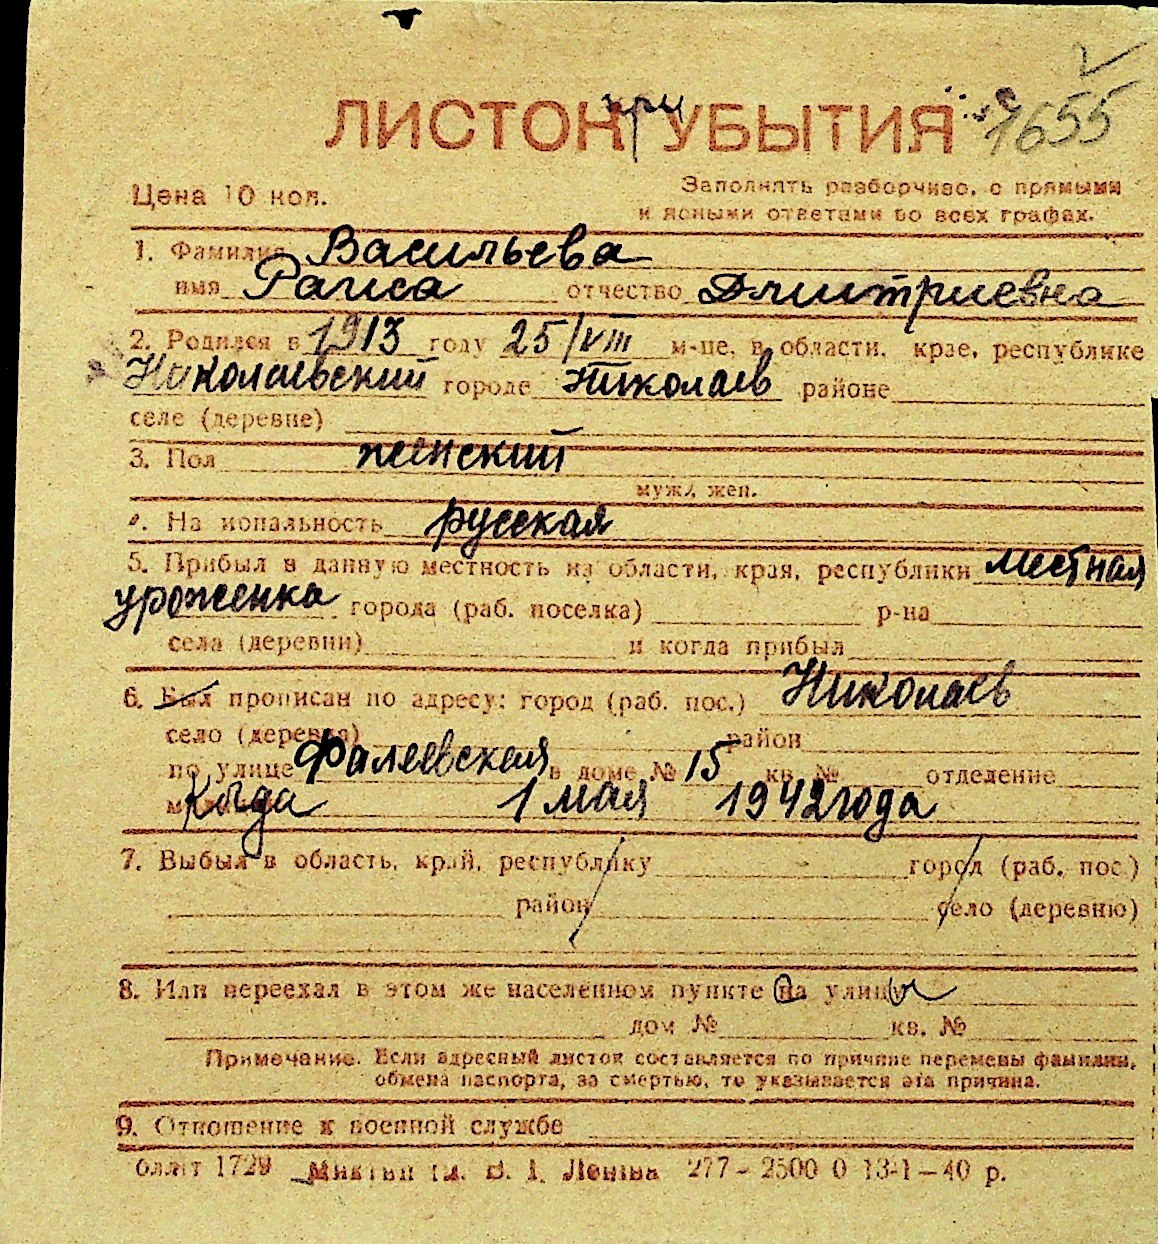 ЛИСТОК при УБЫТИЯ 1655
Цена 10 коп. Заполнять разборчиво, с прямыми
и ясными ответами во всех графах.
1. Фамилия Васильева
имя Раиса отчество Дмитриевна
2. Родился в 1913 году 25/VIII м-це, в области, крае, республике
Николаевский городе Николаев районе
селе (деревне)
3. Пол женский
муж., жен.
Национальность русская
5. Прибыл в данную местность из области, края, республики местная
уроженка города (раб. поселка) р-на
села (деревни) и когда прибыл
6. Был прописан по адресу: город (раб. пос.) Николаев
село (деревня) район
по улице Фалеевская в доме № 15 кв. № отделение
Когда 1 мая 1942 года
7. Выбыл в область, край, республику город (раб. пос.)
район село (деревню)
8. Или переехал в этом же населенном пункте на улицу
дом № кв. №
Примечание. Если адресный листок составляется по причине перемены фамилии,
обмена паспорта, за смертью, то указывается эта причина.
9. Отношение к военной службе
1729 В. І. Леніна 277 – 2500 0 13-1 – 40 р.